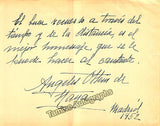 El buen recuerdo a través del
tiempo y de la distancia, es el
mejor homenaje que se le
puede hacer al cantante.
Angeles Ottein de
Madrid
1952
Tamino Autographs